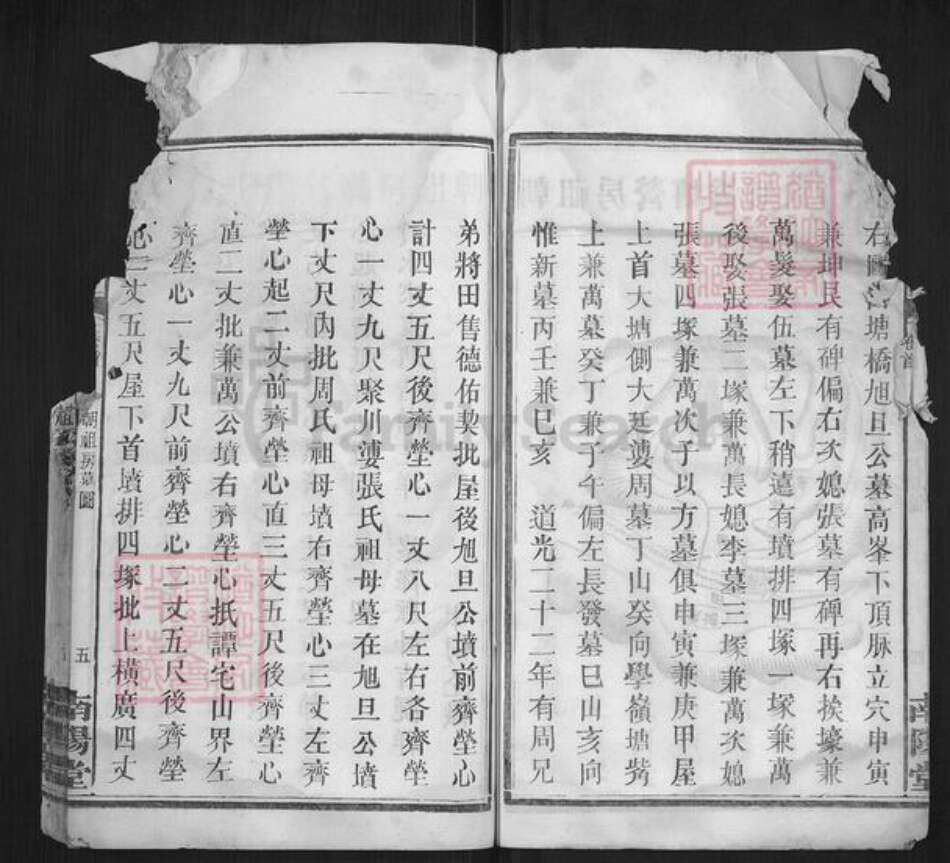 右圖
塘橋旭旦公墓高峯下頂脉立穴申寅
兼坤艮有碑偏右次媳張墓有碑再右挨壕兼
萬髮娶伍墓左下稍遠有墳排四塚一塚兼萬
後娶張墓二塚兼萬長媳李墓三塚兼萬次媳
張墓四塚兼萬次子以方墓俱申寅兼庚甲屋
上首大塘側大廷婆周墓丁山癸向學嶺塘觜
上兼萬墓癸丁兼子午偏左長發墓巳山亥向
惟新墓丙壬兼巳亥 道光二十二年有周兄
弟將田售德佑契批屋後旭旦公墳前齊塋心
計四丈五尺後齊塋心一丈八尺左右各齊塋
心一丈九尺聚川婆張氏祖母墓在旭旦公墳
下丈尺內批周氏祖母墳右齊塋心三丈左齊
塋心起二丈前齊塋心直三丈五尺後齊塋心
直二丈批兼萬公墳右齊塋心抵譚宅山界左
齊塋心一丈九尺前齊塋心二丈五尺後齊塋
心二丈五尺屋下首墳排四塚批上橫廣四丈
朝祖房墓圖
五
南陽堂
卷首
南陽堂
FamilySearch